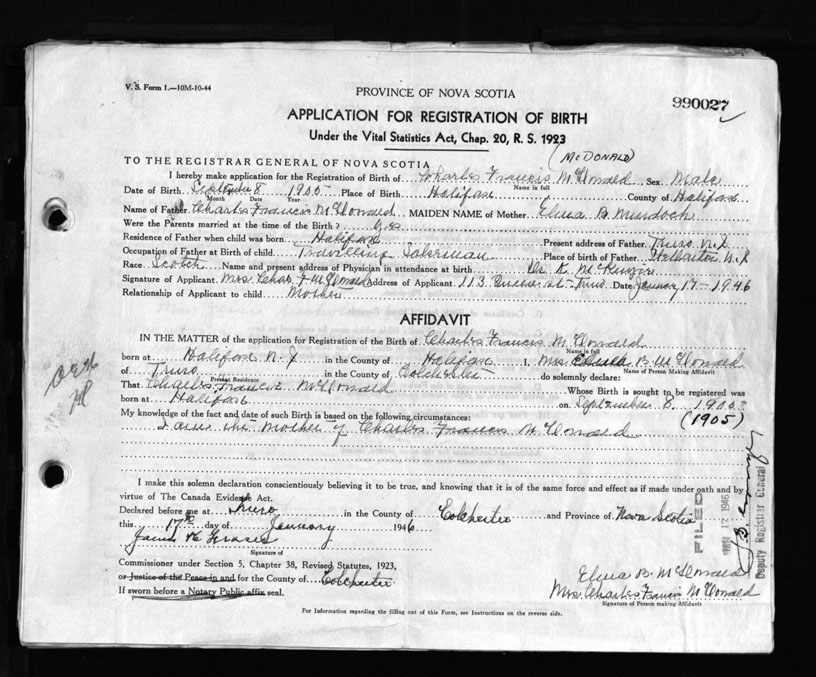 V. S. Form 1.—10M-10-44
PROVINCE OF NOVA SCOTIA
990027
APPLICATION FOR REGISTRATION OF BIRTH
Under the Vital Statistics Act, Chap. 20, R. S. 1923
(McDONALD)
TO THE REGISTRAR GENERAL OF NOVA SCOTIA
I hereby make application for the Registration of Birth of Charles Francis McDonald Sex Male
Name in full
Date of Birth September 8 1905 Place of Birth Halifax County of Halifax
Month Date Year
Name of Father Charles Francis McDonald MAIDEN NAME of Mother Elma B. Murdoch
Were the Parents married at the time of the Birth? yes
Residence of Father when child was born Halifax Present address of Father Truro N.S
Occupation of Father at Birth Travelling Salesman Place of birth of Father Stellarton N.S
Race Scotch Name and present address of Physician in attendance at birth Dr K. McKenzie
Signature of Applicant Mrs Chas F McDonald Address of Applicant 113 Queen St- Truro Date January 17-1946
Relationship of Applicant to child Mother
AFFIDAVIT
IN THE MATTER of the application for Registration of the Birth of Charles Francis McDonald
Name in full
born at Halifax N.S in the County of Halifax I, Mrs B. McDonald
Name of Person Making Affidavit
of Truro in the County of Colchester do solemnly declare:
Present Residence
That Charles Francis McDonald Whose Birth is sought to be registered was
born at Halifax on September 8. 1905
(1905)
My knowledge of the fact and date of such Birth is based on the following circumstances:
I am the mother of Charles Francis McDonald
I make this solemn declaration conscientiously believing it to be true, and knowing that it is of the same force and effect as if made under oath and by
virtue of The Canada Evidence Act.
Declared before me at Truro in the County of Colchester and Province of Nova Scotia
this 17th day of January 1946
James Fraser
Signature of
Commissioner under Section 5, Chapter 38, Revised Statutes, 1923,
or Justice of the Peace in and for the County of Colchester
If sworn before a Notary Public affix seal.
FILED
Deputy Registrar General
Elma B. McDonald
Mrs. Charles Francis McDonald
Signature of Person making Affidavit
For Information regarding the filling out of this Form, see Instructions on the reverse side.